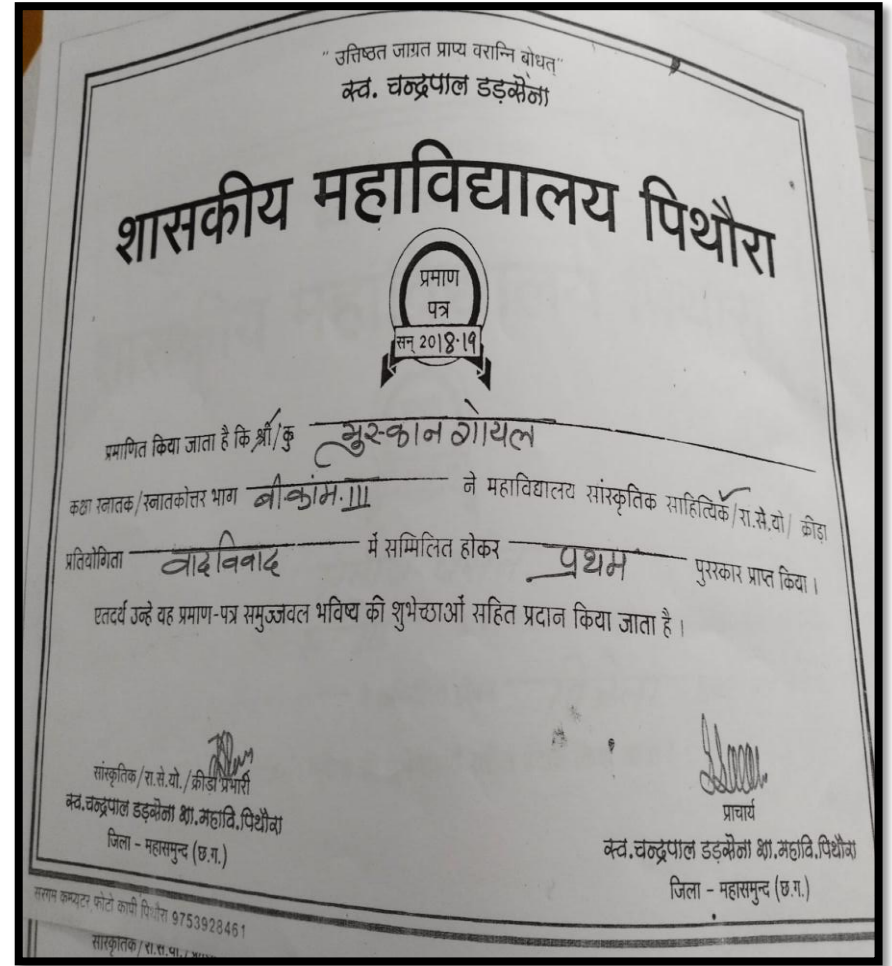 " उत्तिष्ठत जाग्रत प्राप्य वरान्नि बोधत्"
स्व. चन्द्रपाल डड़सेना
शासकीय महाविद्यालय पिथौरा
प्रमाण
पत्र
सन् 2018-19
प्रमाणित किया जाता है कि श्री/कु मुस्कान गोयल
कक्षा स्नातक/स्नातकोत्तर भाग बीकांम.III ने महाविद्यालय सांस्कृतिक साहित्यिक/रा.से.यो/ क्रीड़ा
प्रतियोगिता वादविवाद में सम्मिलित होकर प्रथम पुरस्कार प्राप्त किया ।
एतदर्थ उन्हे यह प्रमाण-पत्र समुज्जवल भविष्य की शुभेच्छाओं सहित प्रदान किया जाता है ।
सांस्कृतिक/रा.से.यो./क्रीडा प्रभारी
स्व.चन्द्रपाल डड़सेना शा.महावि.पिथौरा
जिला - महासमुन्द (छ.ग.)
प्राचार्य
स्व.चन्द्रपाल डड़सेना शा.महावि.पिथौरा
जिला - महासमुन्द (छ.ग.)
सरगम कम्प्यूटर फोटो कापी पिथौरा 9753928461